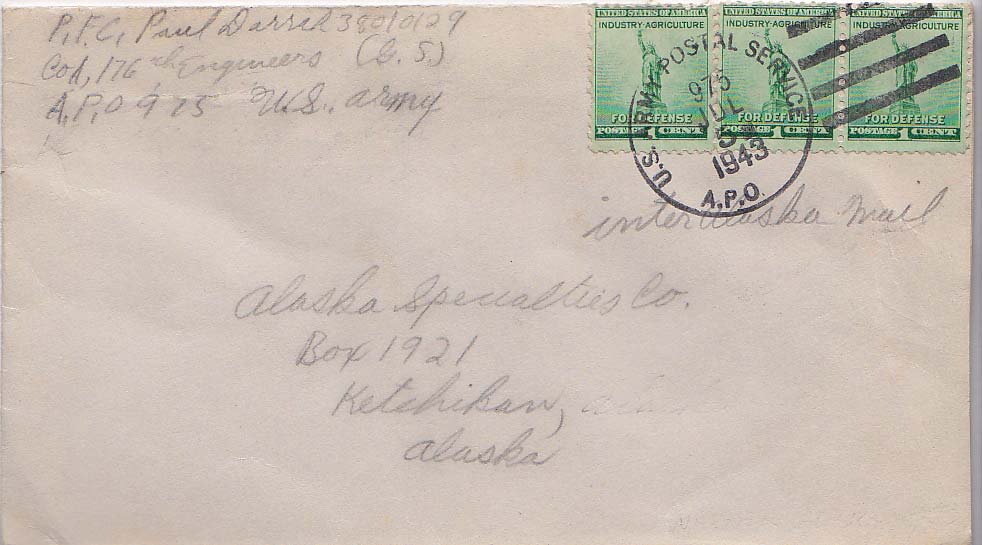 P.F.C. Paul Darrell 38010129
CoA, 176th Engineers (G.S.)
A.P.O 975 U.S. Army
UNITED STATES OF AMERICA UNITED STATES OF AMERICA UNITED STATES OF AMERICA
INDUSTRY-AGRICULTURE INDUSTRY-AGRICULTURE INDUSTRY-AGRICULTURE
FOR DEFENSE FOR DEFENSE FOR DEFENSE
POSTAGE 1 CENT POSTAGE 1 CENT POSTAGE 1 CENT
U.S. ARMY POSTAL SERVICE
975
JUL
5
1943
A.P.O.
inter Alaska Mail
Alaska Specualties Co.
Box 1921
Ketchikan,
Alaska